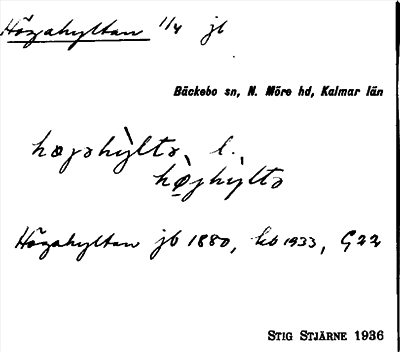 Högahyltan 1/4 jb
Bäckebo sn, N. Möre hd, Kalmar län
høgahỳlta, l.
hø̀jhỳlta
Högahyltan jb 1880, kb 1933, G22
STIG STJÄRNE 1936